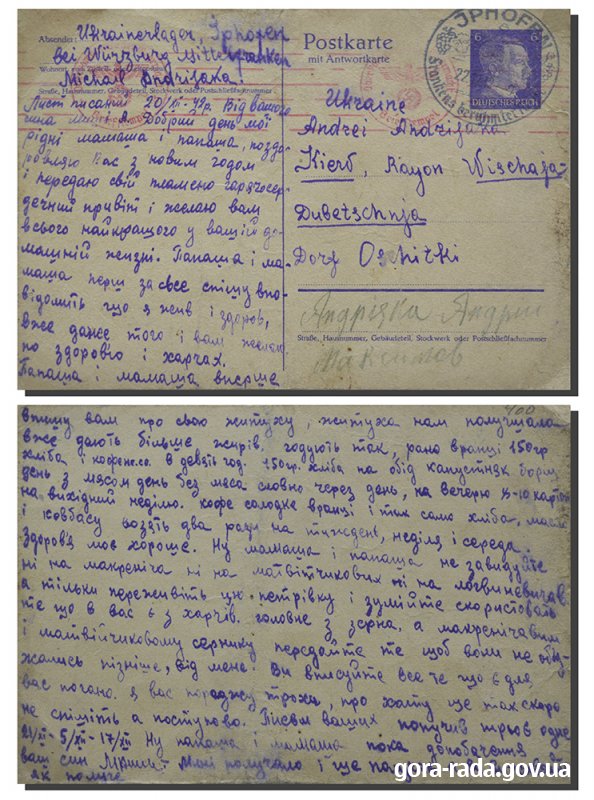 Absender: Ukrainerlager, Iphofen
bei Würzburg Mittelfranken
Michail Andrijaka
Straße, Hausnummer, Gebäudeteil, Stockwerk oder Postschließfachnummer
Лист писаний 20/XII-42р. Від вашого
сина Миші А. Добрий день мої
рідні мамаша і папаша, поздо
ровляю Вас з новим годом
і передаю свій пламено гарячосер-
дечний привіт і желаю вам
всього найкращого у вашій до-
машній жизні. Папаша і ма-
маша перш за все спішу впо-
відомить що я жив і здоров,
вже даже того і вам желаю
по здоровю і харчах.
Папаша і мамаша вперше
Postkarte
mit Antwortkarte
IPHOFEN
6 6
DEUTSCHES REICH
Ukraine
Andrei Andrijaka
Kiew, Rayon Wischaja-
Dubetschnja
Dorf Oschitki
Андріяка Андрій
Straße, Hausnummer, Gebäudeteil, Stockwerk oder Postschließfachnummer
Максимов
400
впишу вам про свою житуху, житуха нам получшала
вже дають більше жирів. годують так, рано вранці 150гр
хліба і кофе. в девять год. 150гр. хліба на обід капустняк борщ
день з мясом день без мяса словно через день, на вечерю 8-10 картоп
на вихідний неділю. кофе солодке вранці і так само хліба, масла
і ковбасу возять два рази на тиждень, неділя і середа.
здоров'я моє хороше. Ну мамаша і папаша не завидуйте
ні на макреніча ні на матвітчикових ні на логвиневичав
а тільки переживіть цю петрівку і зумійте скористовать
те що в вас є з харчів. головне з зерна, а макренічавим
і матвійчиковому сернику передайте те щоб вони не обі
жались пізніше, від мене. Ви вписуйте все те що є для
вас погано. я вас пораджу трохи, про хату ще так скоро
не спішіть а поступово. Письом ваших получив трьов одне
21/XI- 5/XII- 17/XII Ну папаша і мамаша пока до побачення
ваш син Миша. Мені получало і ще
як получе
gora-rada.gov.ua